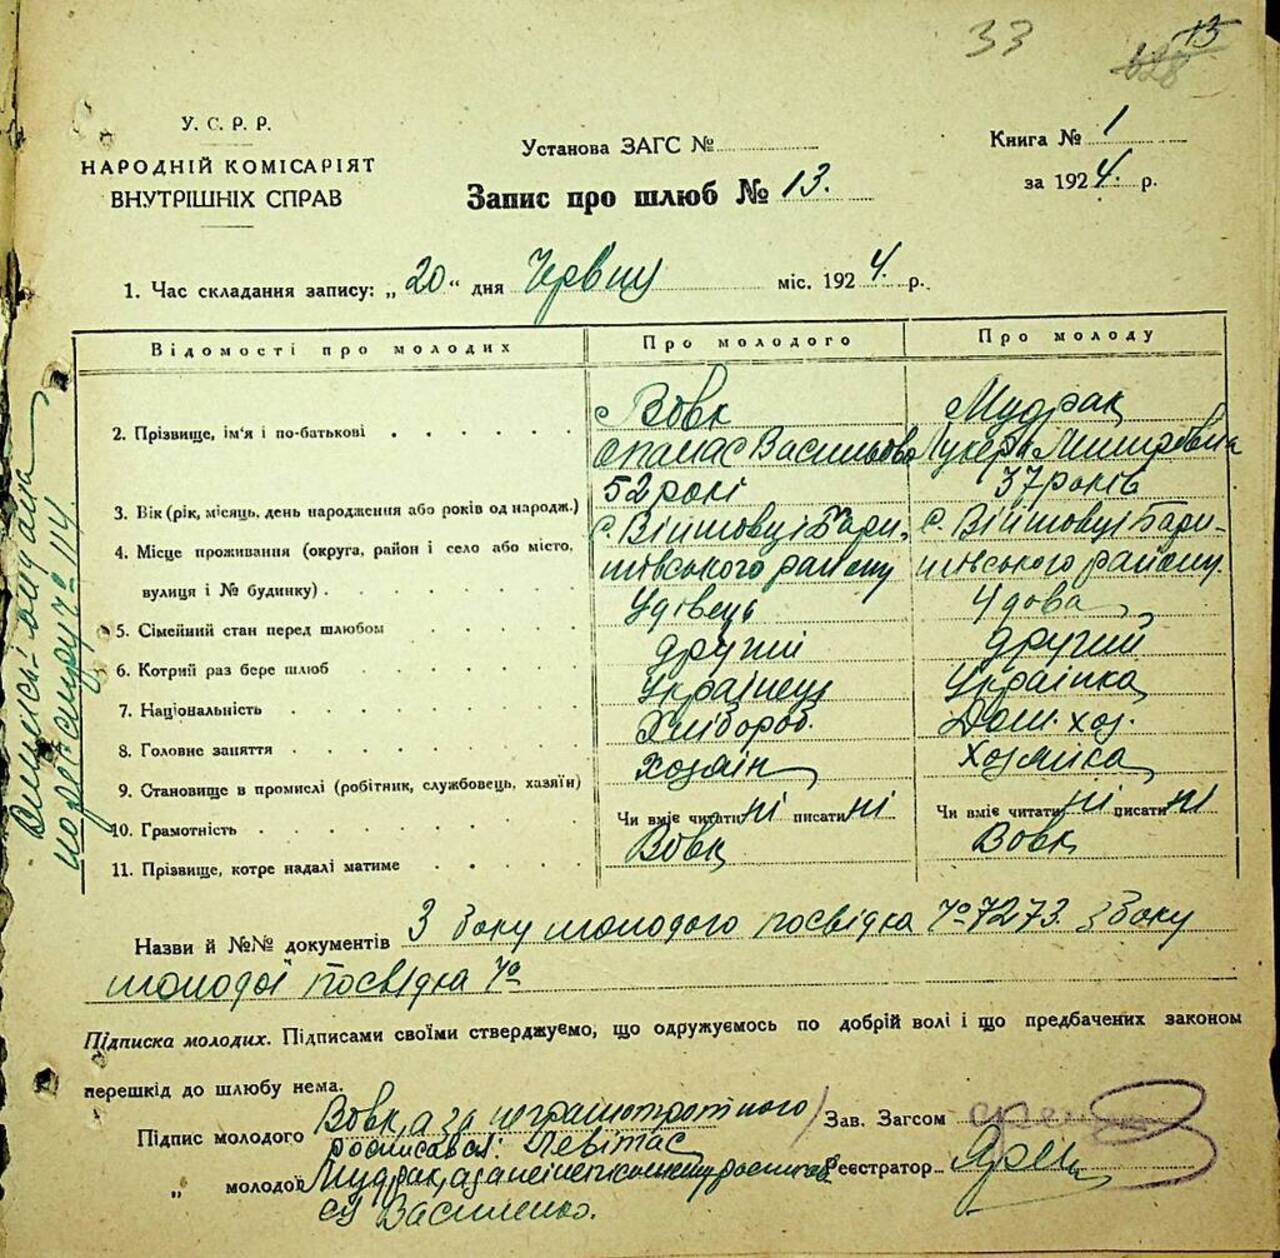 33
13
628
У. С. Р. Р.
НАРОДНІЙ КОМІСАРІЯТ
ВНУТРІШНІХ СПРАВ
Установа ЗАГС №
Запис про шлюб № 13.
Книга № 1
за 1924. р.
1. Час складання запису: „20“ дня Червцу міс. 1924. р.
Відомості про молодих Про молодого Про молоду
2. Прізвище, ім'я і по-батькові Вовк Мудрак
Опанас Васильов Лукера
3. Вік (рік, місяць, день народження або років од народж.) 52 рокі 37 років
4. Місце проживання (округа, район і село або місто, с. Війтовці Бари- с. Війтовці Бари-
вулиця і № будинку) шівського району шівського району.
5. Сімейний стан перед шлюбом Удівець Удова
6. Котрий раз бере шлюб другий другий
7. Національність Українець Українка
8. Головне заняття Хлібороб. Дом. хоз.
9. Становище в промислі (робітник, службовець, хазяїн) Хозяін Хозяйка
10. Грамотність Чи вміє читати ні писати ні Чи вміє читати ні писати ні
11. Прізвище, котре надалі матиме Вовк Вовк
Назви й №№ документів З боку молодого посвідка № 7273. З боку
молодої посвідка №
Підписка молодих. Підписами своїми стверджуємо, що одружуємось по добрій волі і що предбачених законом
перешкід до шлюбу нема.
Підпис молодого Вовк, а за
росписався: Левітас Зав. Загсом
„ молодої Мудрак, Реєстратор
Василенко.